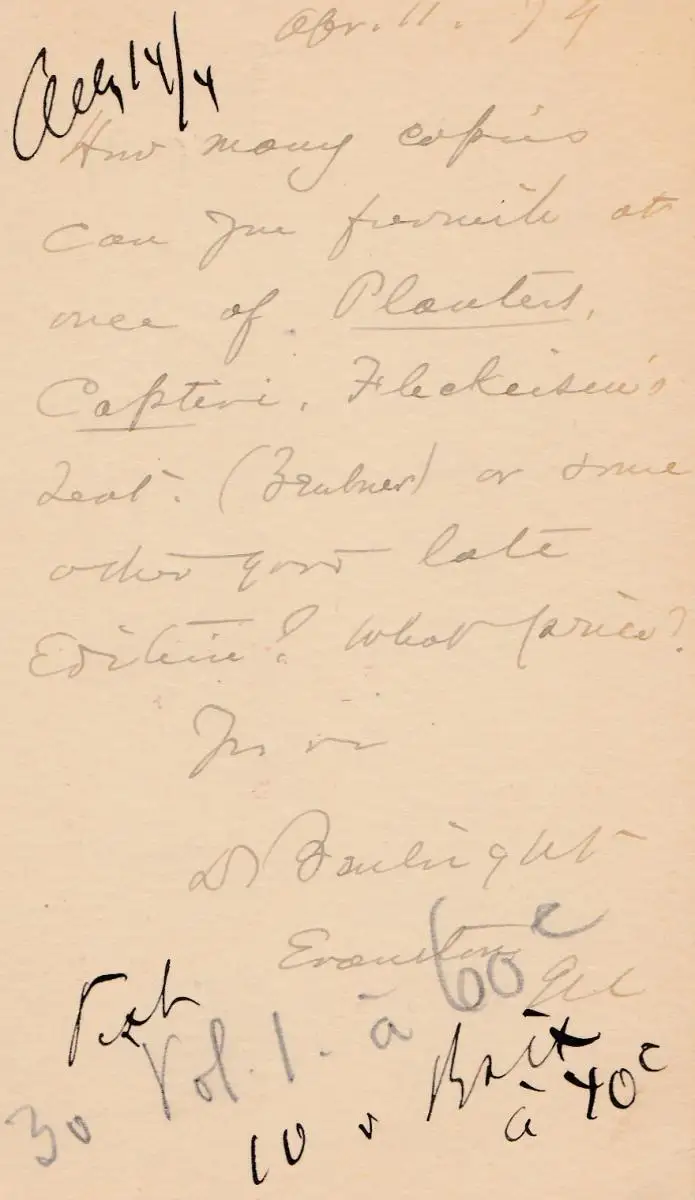 Apr. 11. 79
14/4
How many copies
can you furnish at
once of Plauters,
Captivi, Fleckeisen's
Text. (Teubner) or some
other good late
Edition? What price?
Yrs
D Bonbright
Evanston
Ill
60c
Text
Vol. 1. à
30
10 v
à 40c